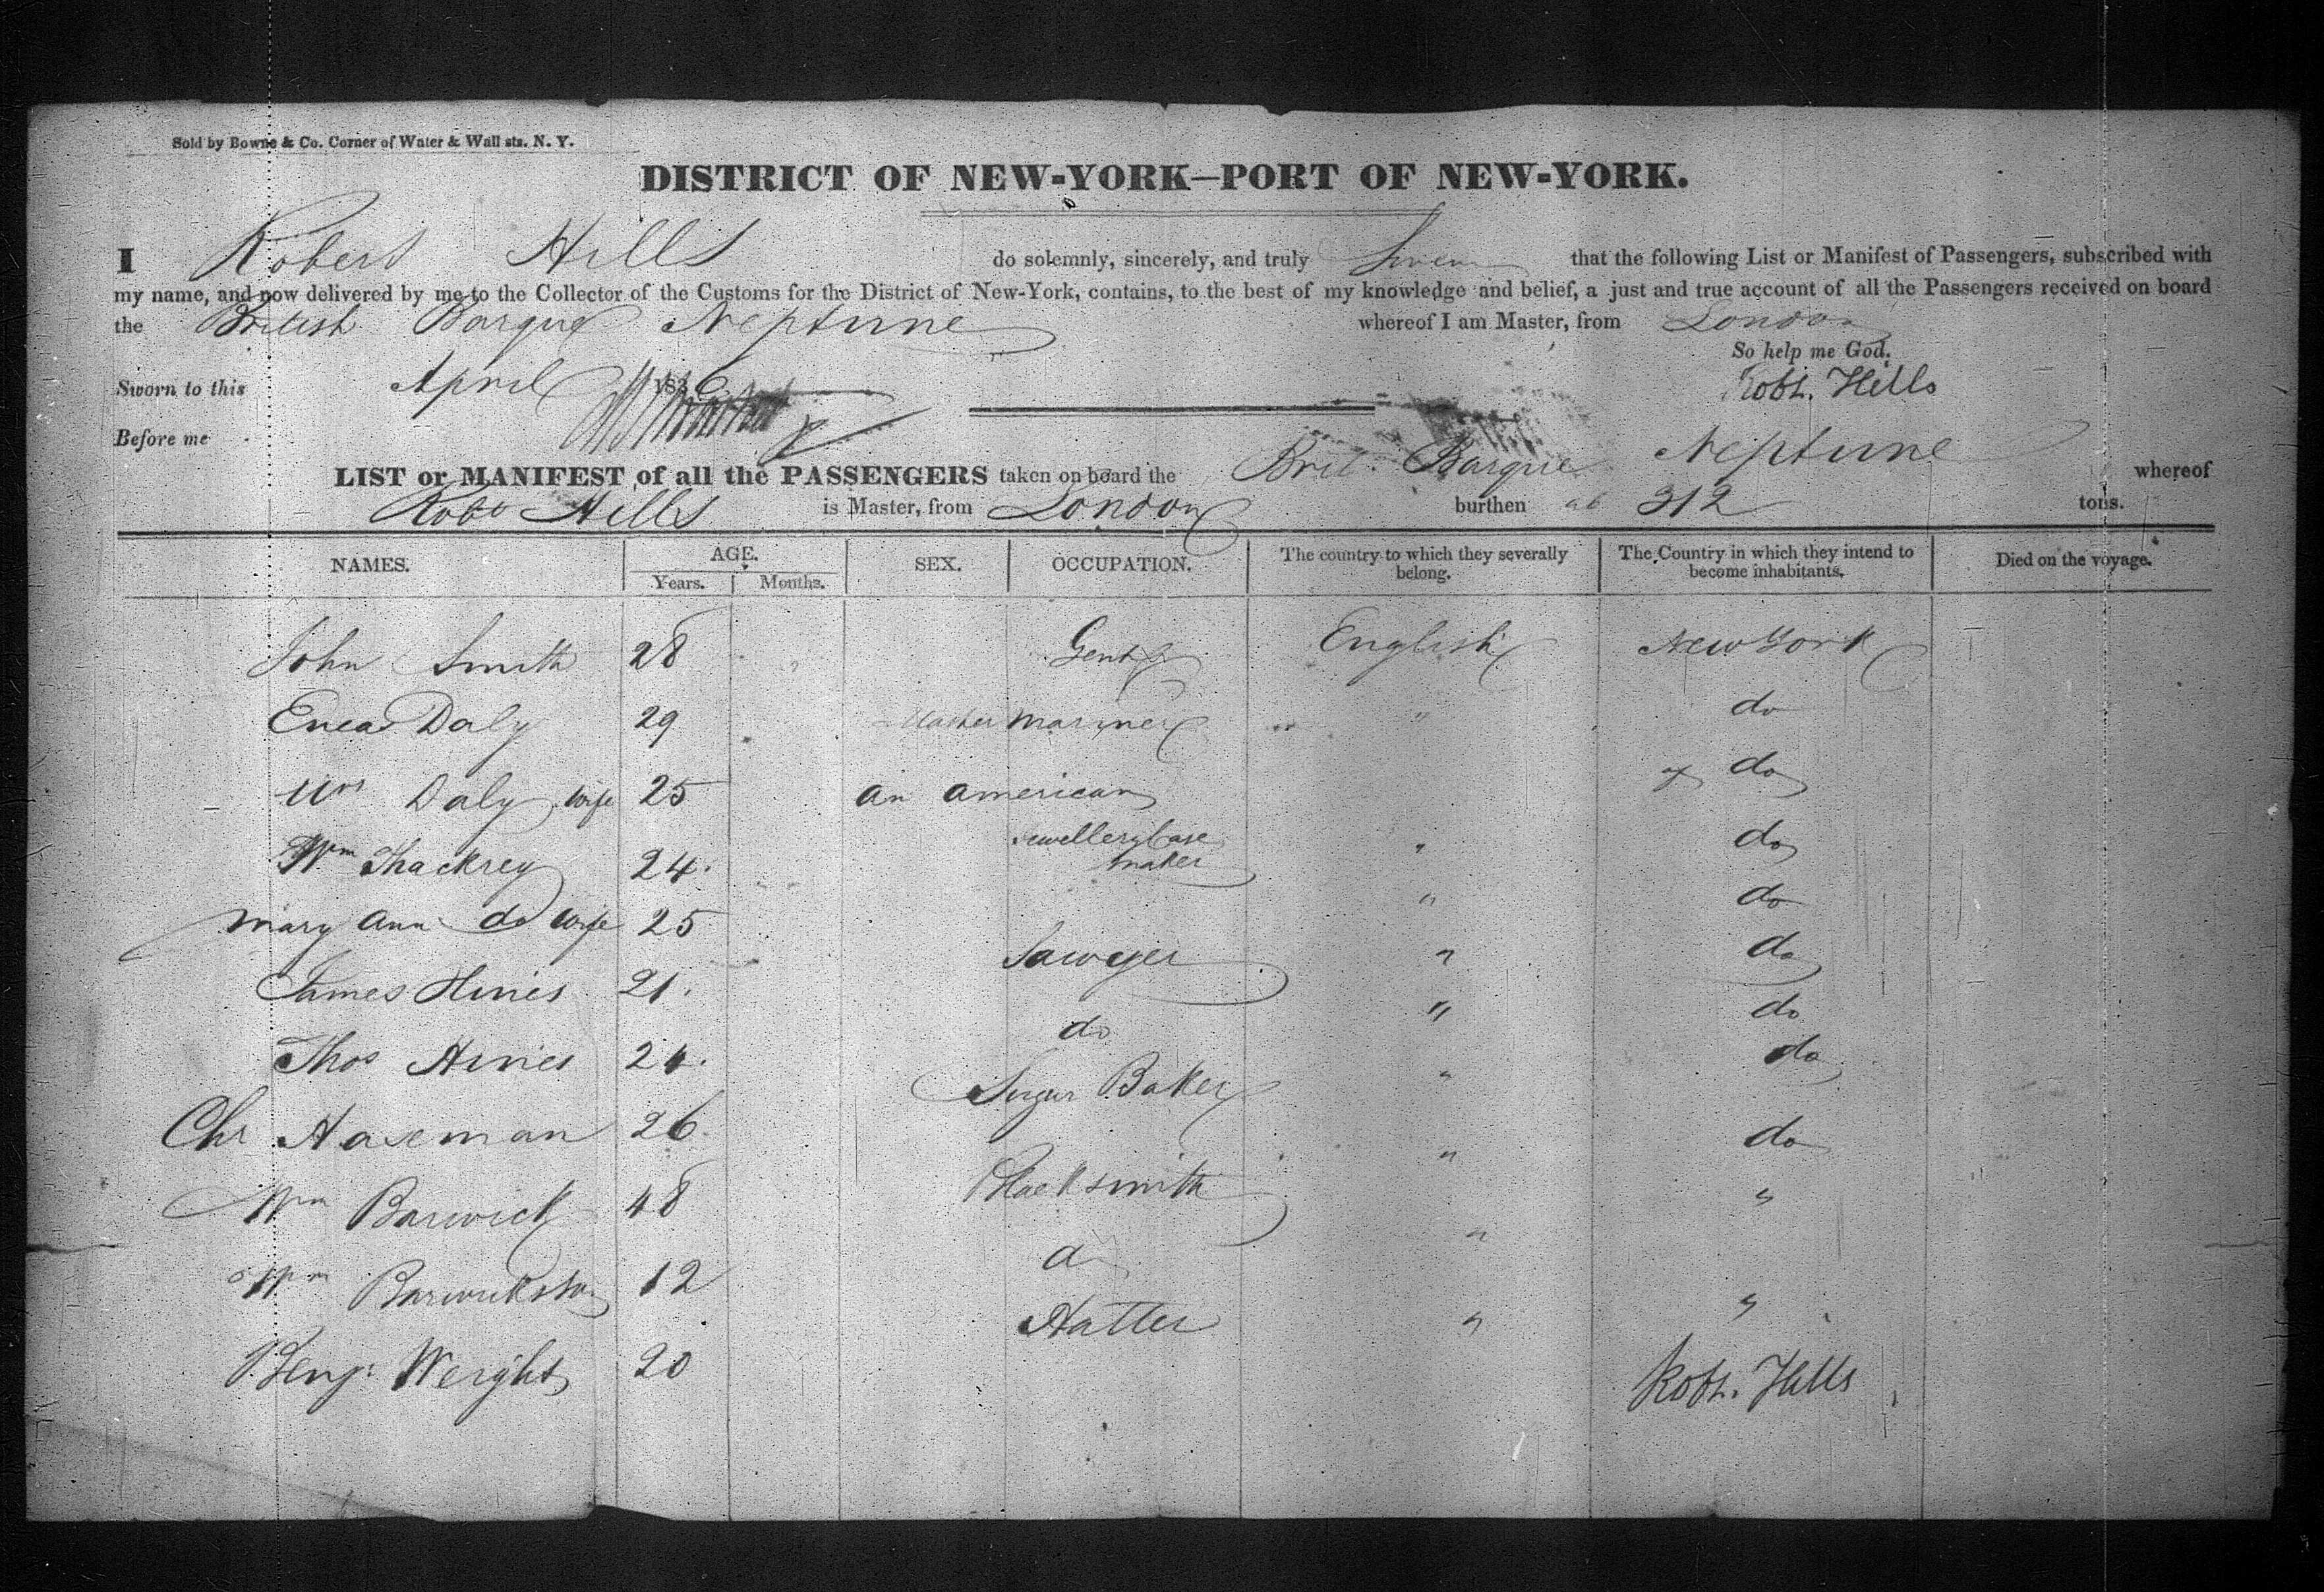 Sold by Bowne & Co. Corner of Water & Wall sts. N. Y.
DISTRICT OF NEW-YORK—PORT OF NEW-YORK.
I Robert Hills do solemnly, sincerely, and truly Swear that the following List or Manifest of Passengers, subscribed with
my name, and now delivered by me to the Collector of the Customs for the District of New-York, contains, to the best of my knowledge and belief, a just and true account of all the Passengers received on board
the British Barque Neptune whereof I am Master, from London
So help me God.
Sworn to this April 183 Robt. Hills
Before me
LIST or MANIFEST of all the PASSENGERS taken on board the Brit. Barque Neptune whereof
Robt Hills is Master, from London burthen ab 312 tons.
NAMES. AGE. SEX. OCCUPATION. The country to which they severally belong. The Country in which they intend to become inhabitants. Died on the voyage.
Years. Months.
John Smith 28 Gent English New York
Eneas Daly 29 Master Mariner " " do
Mrs Daly wife 25 an american of do
Wm Thackrey 24. Jewellery Case maker " do
Mary Ann do wife 25 " do
James Hines 21. Sawyer " do
Thos Hines 24. do " do
Chr Haseman 26. Sugar Baker " do
Wm Barwick 48 Blacksmith " do
Wm Barwick son 12 d " "
Benj. Weright 20 Hatter " "
Robt. Hills